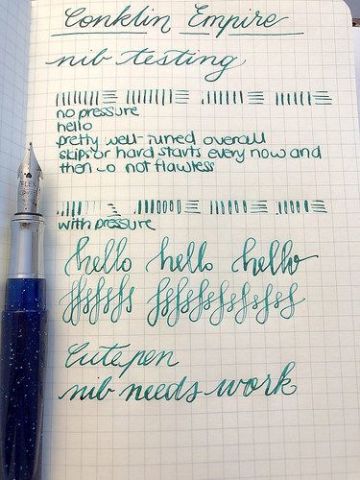 Conklin Empire
nib testing
no pressure
hello
pretty well-tuned overall
skips or hard starts every now and
then so not flawless
with pressure
hello hello hello
Cute pen
nib needs work